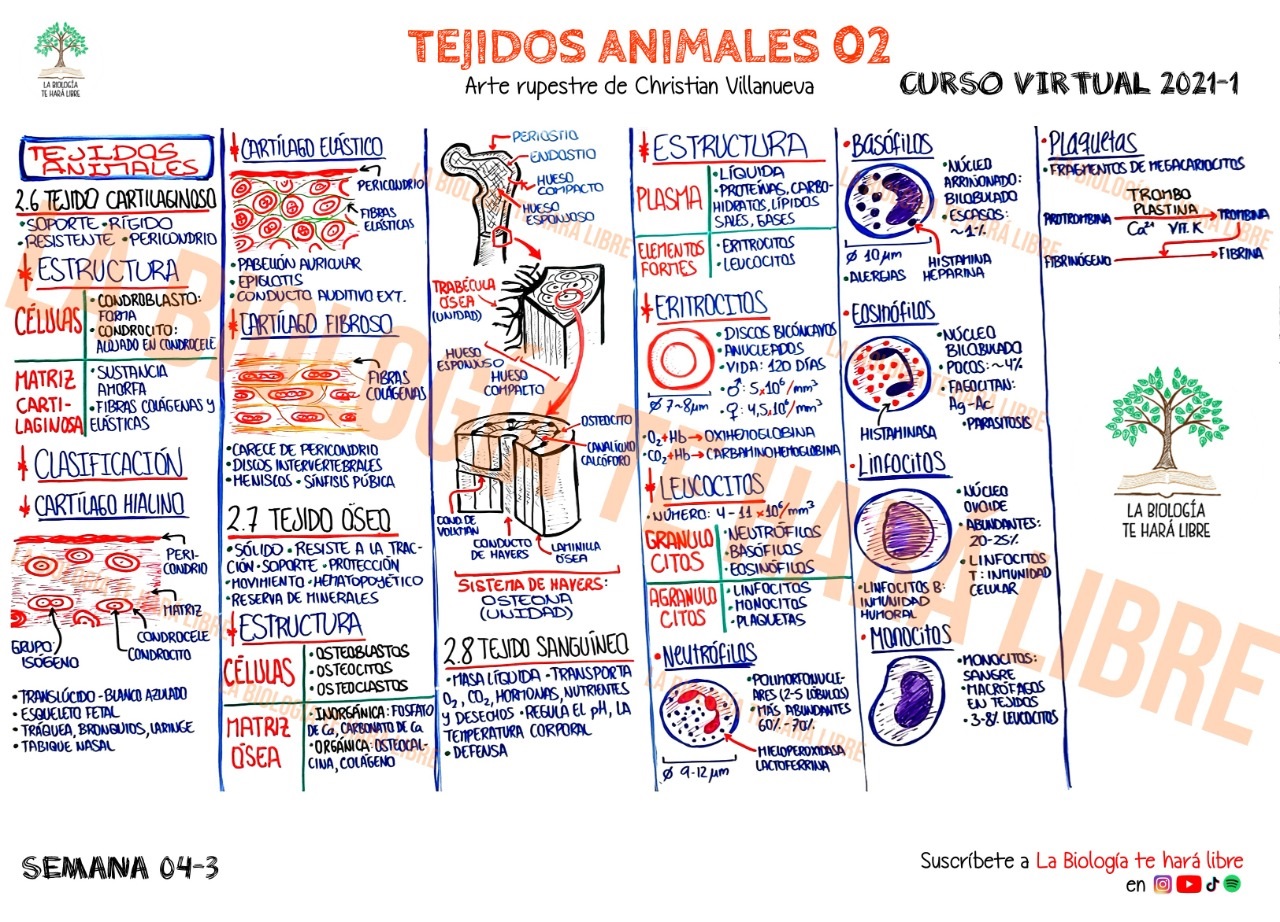 LA BIOLOGÍA
TE HARÁ LIBRE
TEJIDOS ANIMALES 02
Arte rupestre de Christian Villanueva
CURSO VIRTUAL 2021-1
TEJIDOS
ANIMALES
2.6 TEJIDO CARTILAGINOSO
• SOPORTE • RÍGIDO
• RESISTENTE • PERICONDRIO
* ESTRUCTURA
CÉLULAS
• CONDROBLASTO:
FORMA
• CONDROCITO:
ALOJADO EN CONDROCELE
MATRIZ
CARTI-
LAGINOSA
• SUSTANCIA
AMORFA
• FIBRAS COLÁGENAS Y
ELÁSTICAS
* CLASIFICACIÓN
* CARTÍLAGO HIALINO
PERI-
CONDRIO
MATRIZ
GRUPO
ISÓGENO
CONDROCELE
CONDROCITO
• TRANSLÚCIDO - BLANCO AZULADO
• ESQUELETO FETAL
• TRÁQUEA, BRONQUIOS, LARINGE
• TABIQUE NASAL
* CARTÍLAGO ELÁSTICO
PERICONDRIO
FIBRAS
ELÁSTICAS
• PABELLÓN AURICULAR
• EPIGLOTIS
• CONDUCTO AUDITIVO EXT.
* CARTÍLAGO FIBROSO
FIBRAS
COLÁGENAS
• CARECE DE PERICONDRIO
• DISCOS INTERVERTEBRALES
• MENISCOS • SÍNFISIS PÚBICA
2.7 TEJIDO ÓSEO
• SÓLIDO • RESISTE A LA TRAC-
CIÓN • SOPORTE • PROTECCIÓN
• MOVIMIENTO • HEMATOPOYÉTICO
• RESERVA DE MINERALES
* ESTRUCTURA
CÉLULAS
• OSTEOBLASTOS
• OSTEOCITOS
• OSTEOCLASTOS
MATRIZ
ÓSEA
• INORGÁNICA: FOSFATO
DE Ca, CARBONATO DE Ca
• ORGÁNICA: OSTEOCAL-
CINA, COLÁGENO
PERIOSTIO
ENDOSTIO
HUESO
COMPACTO
HUESO
ESPONJOSO
TRABÉCULA
ÓSEA
(UNIDAD)
HUESO
ESPONJOSO
HUESO
COMPACTO
OSTEOCITO
CANALÍCULO
CALCÓFORO
COND. DE
VOLKMAN
CONDUCTO
DE HAVERS
LAMINILLA
ÓSEA
SISTEMA DE HAVERS:
OSTEONA
(UNIDAD)
2.8 TEJIDO SANGUÍNEO
• MASA LÍQUIDA • TRANSPORTA
O₂, CO₂, HORMONAS, NUTRIENTES
Y DESECHOS • REGULA EL pH, LA
TEMPERATURA CORPORAL
• DEFENSA
* ESTRUCTURA
PLASMA
• LÍQUIDA
• PROTEÍNAS, CARBO-
HIDRATOS, LÍPIDOS
SALES, GASES
ELEMENTOS
FORMES
• ERITROCITOS
• LEUCOCITOS
* ERITROCITOS
• DISCOS BICÓNCAVOS
• ANUCLEADOS
• VIDA: 120 DÍAS
• ♂: 5×10⁶/mm³
• ♀: 4,5×10⁶/mm³
Ø 7-8µm
• O₂ + Hb → OXIHEMOGLOBINA
• CO₂ + Hb → CARBAMINOHEMOGLOBINA
* LEUCOCITOS
• NÚMERO: 4-11 ×10⁶/mm³
GRANULO
CITOS
• NEUTRÓFILOS
• BASÓFILOS
• EOSINÓFILOS
AGRANULO
CITOS
• LINFOCITOS
• MONOCITOS
• PLAQUETAS
• NEUTRÓFILOS
• POLIMORFONUCLE-
ARES (2-5 LÓBULOS)
• MÁS ABUNDANTES
60% - 70%
MIELOPEROXIDASA
LACTOFERRINA
Ø 9-12µm
• BASÓFILOS
• NÚCLEO
ARRIÑONADO:
BILOBULADO
• ESCASOS:
~1%
Ø 10µm
HISTAMINA
HEPARINA
• ALERGIAS
• EOSINÓFILOS
• NÚCLEO
BILOBULADO
• POCOS: ~4%
• FAGOCITAN:
Ag-Ac
• PARÁSITOS
HISTAMINASA
• LINFOCITOS
• NÚCLEO
OVOIDE
• ABUNDANTES:
20-25%
• LINFOCITOS
T: INMUNIDAD
CELULAR
• LINFOCITOS B:
INMUNIDAD
HUMORAL
• MONOCITOS
• MONOCITOS:
SANGRE
• MACRÓFAGOS
EN TEJIDOS
• 3-8% LEUCOCITOS
• PLAQUETAS
• FRAGMENTOS DE MEGACARIOCITOS
TROMBO
PLASTINA
PROTROMBINA → TROMBINA
Ca²⁺ VIT. K
FIBRINÓGENO → FIBRINA
LA BIOLOGÍA
TE HARÁ LIBRE
LA BIOLOGÍA TE HARÁ LIBRE
SEMANA 04-3
Suscríbete a La Biología te hará libre
en